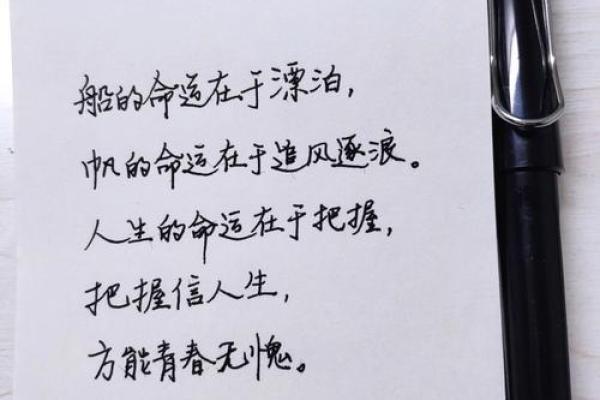 船的命运在于漂泊，
帆的命运在于追风逐浪。
人生的命运在于把握，
把握信人生，
方能青春无愧。